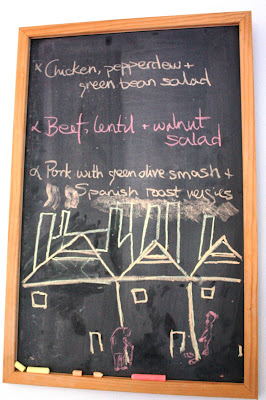 x Chicken, pepperdew +
green bean salad
x Beef, lentil + walnut
salad
x Pork with green olive smash +
Spanish roast vegies